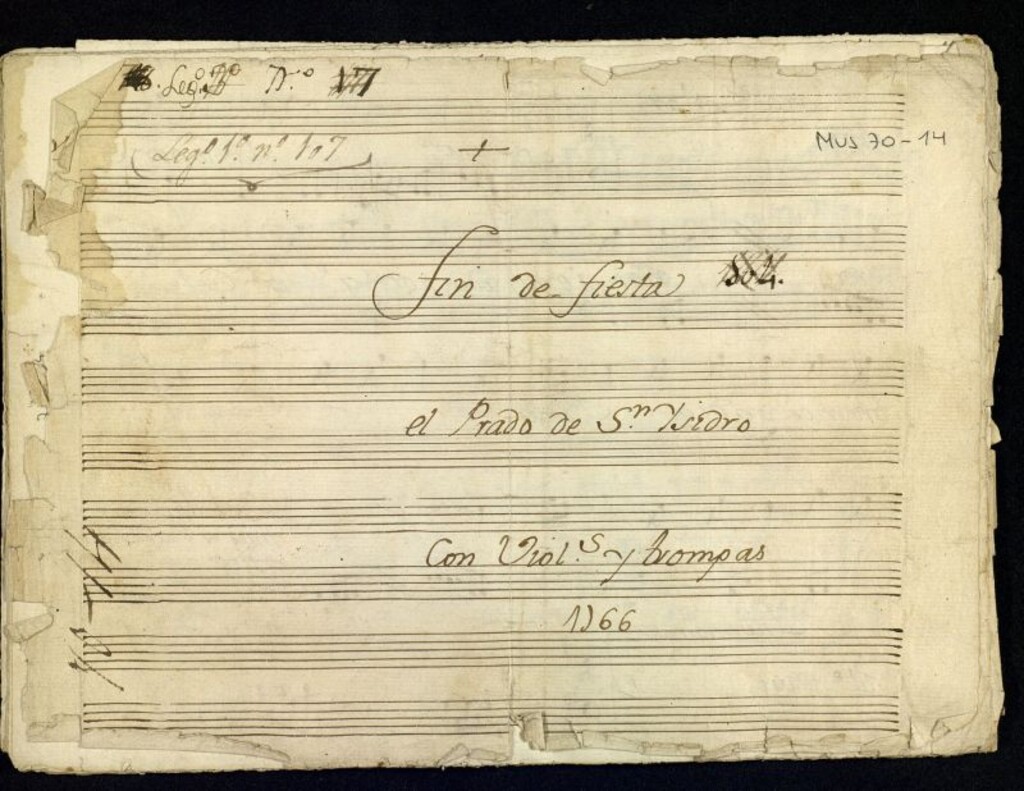 Leg.º Nº
Legº 1º nº 107
+
MUS 70-14
fin de fiesta
el Prado de S.n Ysidro
Con Viol.s y trompas
1766